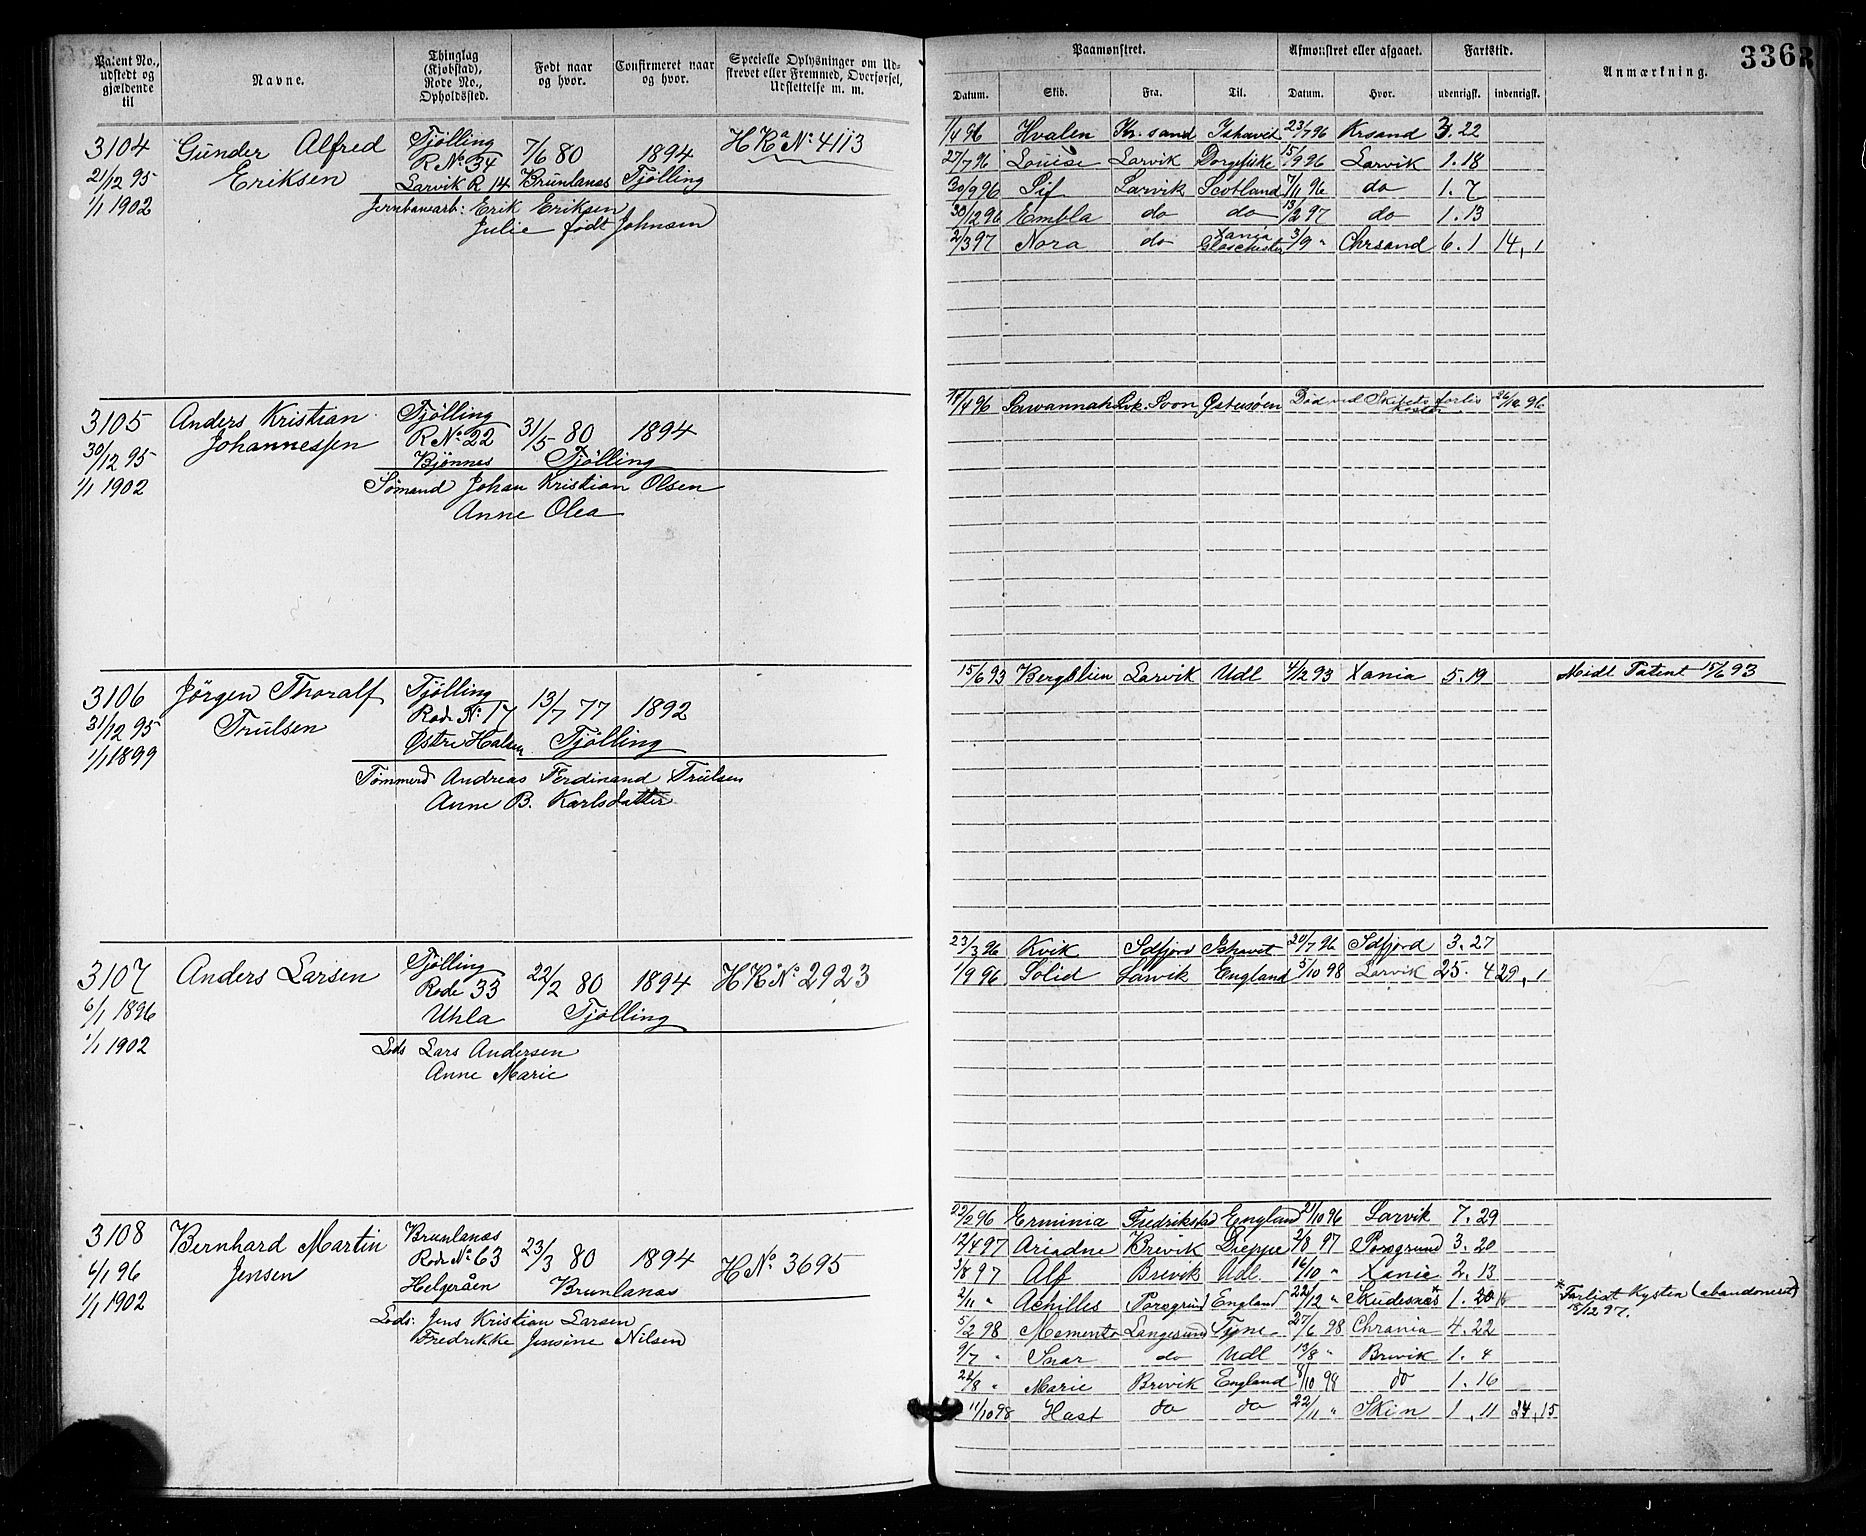 Patent No., udstedt og gjældende til
Navne.
Thinglag (Kjøbstad), Rode No., Opholdssted.
Født naar og hvor.
Confirmeret naar og hvor.
Specielle Oplysninger om Udskrevet eller Fremmed, Overførsel, Udslettelse m. m.
Paamønstret.
Afmønstret eller afgaaet.
Fartstid.
Anmærkning.
336
Datum. Skib. Fra. Til. Datum. Hvor. udenrigsk. indenrigsk.
3104
21/12 95
1/1 1902
Günder Alfred
Eriksen
Tjølling
R No 34
Larvik R 14
7/6 80
Brünlanæs
1894
Tjølling
H Ka No 4113
Jernbanearb: Erik Eriksen
Julie født Johnsen
1/4 96 Hvalen Kr.sand Ishavet 23/7 96 Krsand 3.22
27/7 96 Louise Larvik 15/9 96 Larvik 1.18
30/9 96 Sif Larvik Scotland 7/11 96 do 1.7
30/12 96 Embla do do 13/2 97 do 1.13
2/3 97 Nora do Xania 3/9 " Chrsand 6.1 14,1
3105
30/12 95
1/1 1902
Anders Kristian
Johannessen
Tjølling
R No 22
Bjønnes
31/5 80
1894
Tjølling
Sømand Johan Kristian Olsen
Anne Olea
14/4 96 Savannah Østersøen Død ved Skibets forlis 26/10 96
3106
31/12 95
1/1 1899
Jørgen Thoralf
Trülsen
Tjølling
Rode No 17
Østre Halsen
13/7 77
1892
Tjølling
Tømmerd Andreas Ferdinand Trülsen
Anne B. Karlsdatter
15/6 93 Bergslien Larvik Udl 4/12 93 Xania 5.19 Midl Patent 15/6 93
3107
6/1 1896
1/1 1902
Anders Larsen
Tjølling
Rode 33
Uhla
22/2 80
1894
Tjølling
H Ka No 2923
Lods Lars Andersen
Anne Marie
23/3 96 Kvik Sdfjord Ishavet 20/7 96 Sdfjord 3.27
1/9 96 Solid Larvik England 5/10 98 Larvik 25.4 29,1
3108
6/1 96
1/1 1902
Bernhard Martin
Jensen
Brunlanæs
Rode No 63
Helgeråen
23/3 80
1894
Brunlanæs
H No 3695
Lods: Jens Kristian Larsen
Fredrikke Jensine Nilsen
23/2 96 Erminia Fredrikstad England 21/10 96 Larvik 7.29
12/4 97 Ariadne Brevik Dieppe 2/8 97 Porsgrund 3.20
3/8 97 Alf Brevik Udl. 16/10 " Xania 2.13
2/11 " Achilles Porsgrund England 22/12 " Skudesnæs* 1.20 *Forlist Kysten (abandoneret)
18/12 97.
5/2 98 Memento Langesund Tyne 27/6 98 Chrania 4.22
9/7 " Snar do Udl 13/8 " Brevik 1.4
22/8 " Marie Brevik England 8/10 98 do 1.16
11/10 98 Hast do do 22/11 " Skien 1.11 24,15